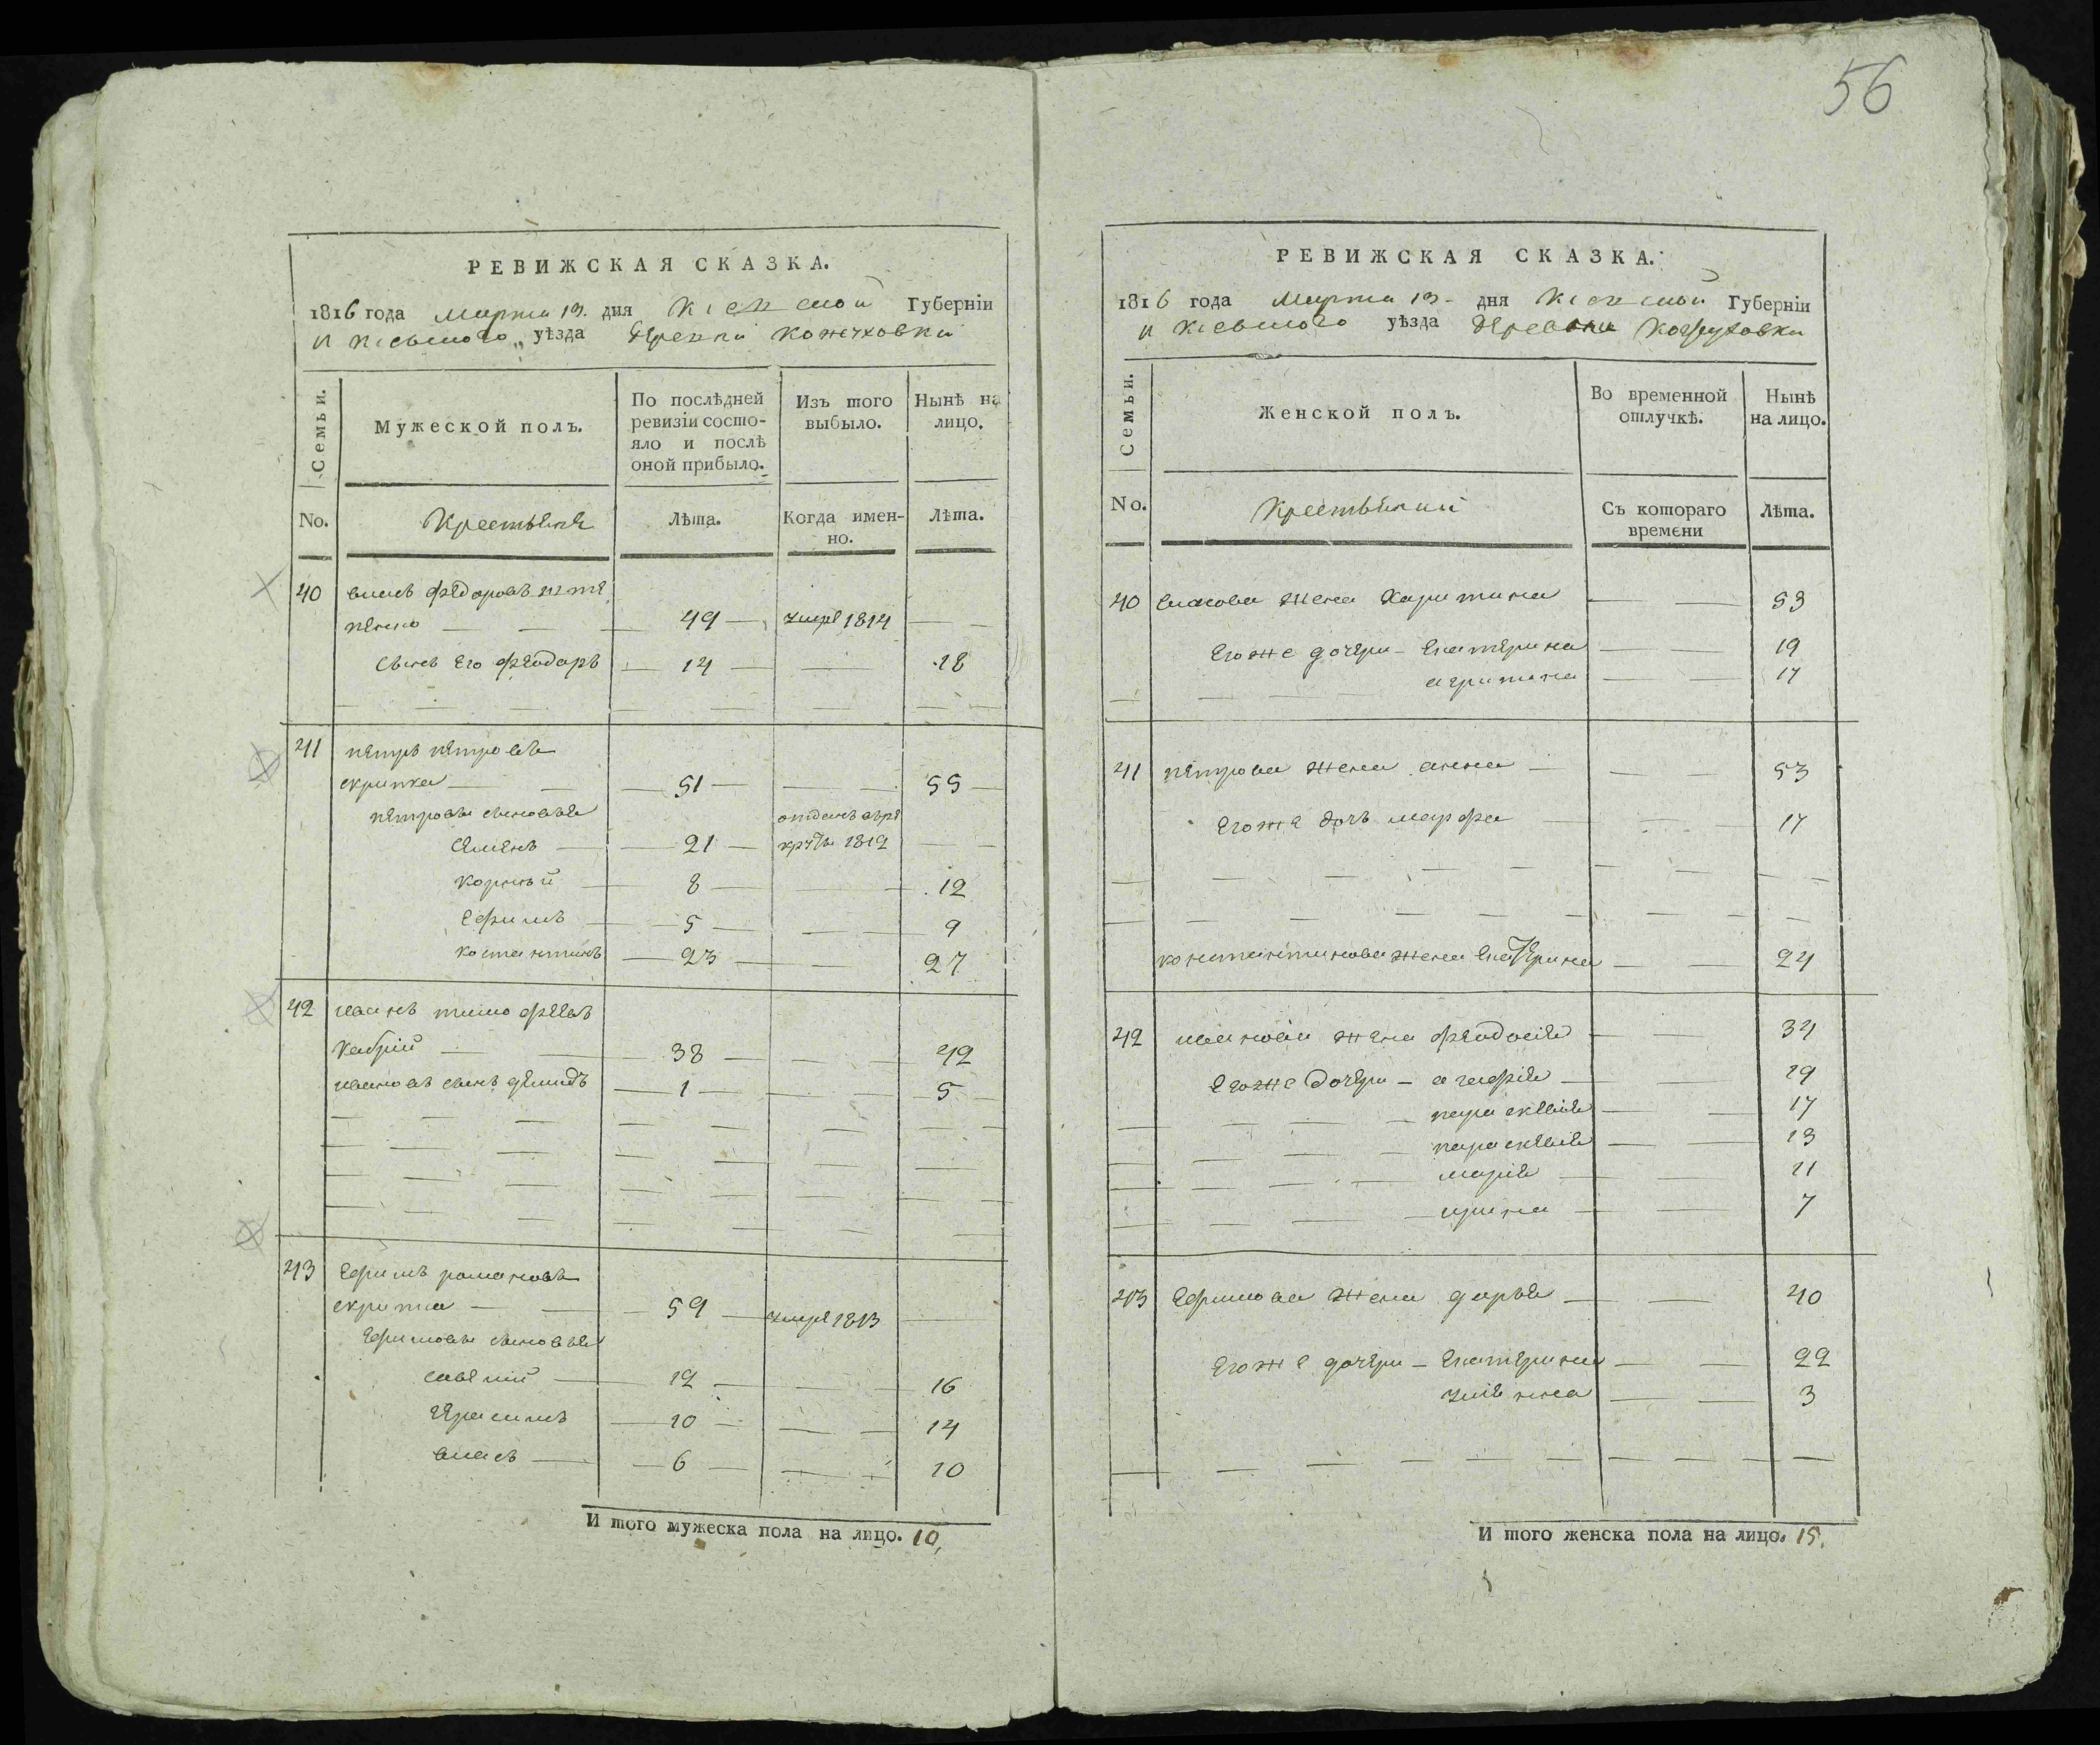 56
РЕВИЖСКАЯ СКАЗКА.
1816 года Марта 13. дня Кіевской Губерніи
и Кіевского уѣзда деревни
Семьи.
Мужеской полъ.
По послѣдней ревизіи состо-
яло и послѣ
оной прибыло.
Изъ того
выбыло.
Нынѣ на
лицо.
No.
Крестьяне
Лѣта.
Когда имен-
но.
Лѣта.
40 власъ федоровъ
49 умре 1814
сынъ его феодоръ 14 18
41 петръ петровъ
скрипка 51 55
петровы сыновья отданъ въре
семенъ 21 круты 1812
корнѣй 8 12
ефимъ 5 9
костантинъ 23 27
42 иванъ тимофеевъ
38 42
ивановъ сынъ демидъ 1 5
43 ефимъ романовъ
скрипка 59 умре 1813
ефимовы сыновья
савелій 12 16
герасимъ 10 14
власъ 6 10
И того мужеска пола на лицо. 10,
РЕВИЖСКАЯ СКАЗКА.
1816 года Марта 13 - дня Кіевской Губерніи
и Кіевского уѣзда деревни
Семьи.
Женской полъ.
Во временной
отлучкѣ.
Нынѣ
на лицо.
No.
Крестьянки
Съ котораго
времени
Лѣта.
40 власова жена Харитина 53
егоже дочери - екатерина 19
агрипина 17
41 петрова жена анна 53
егоже дочь марфа 17
константинова жена екатерина 24
42 иванова жена феодосія 34
егоже дочери - агафія 19
параскевія 17
параскевія 13
марія 11
ирина 7
43 ефимова жена дарья 40
егоже дочери - екатерина 22
уліянна 3
И того женска пола на лицо. 15.